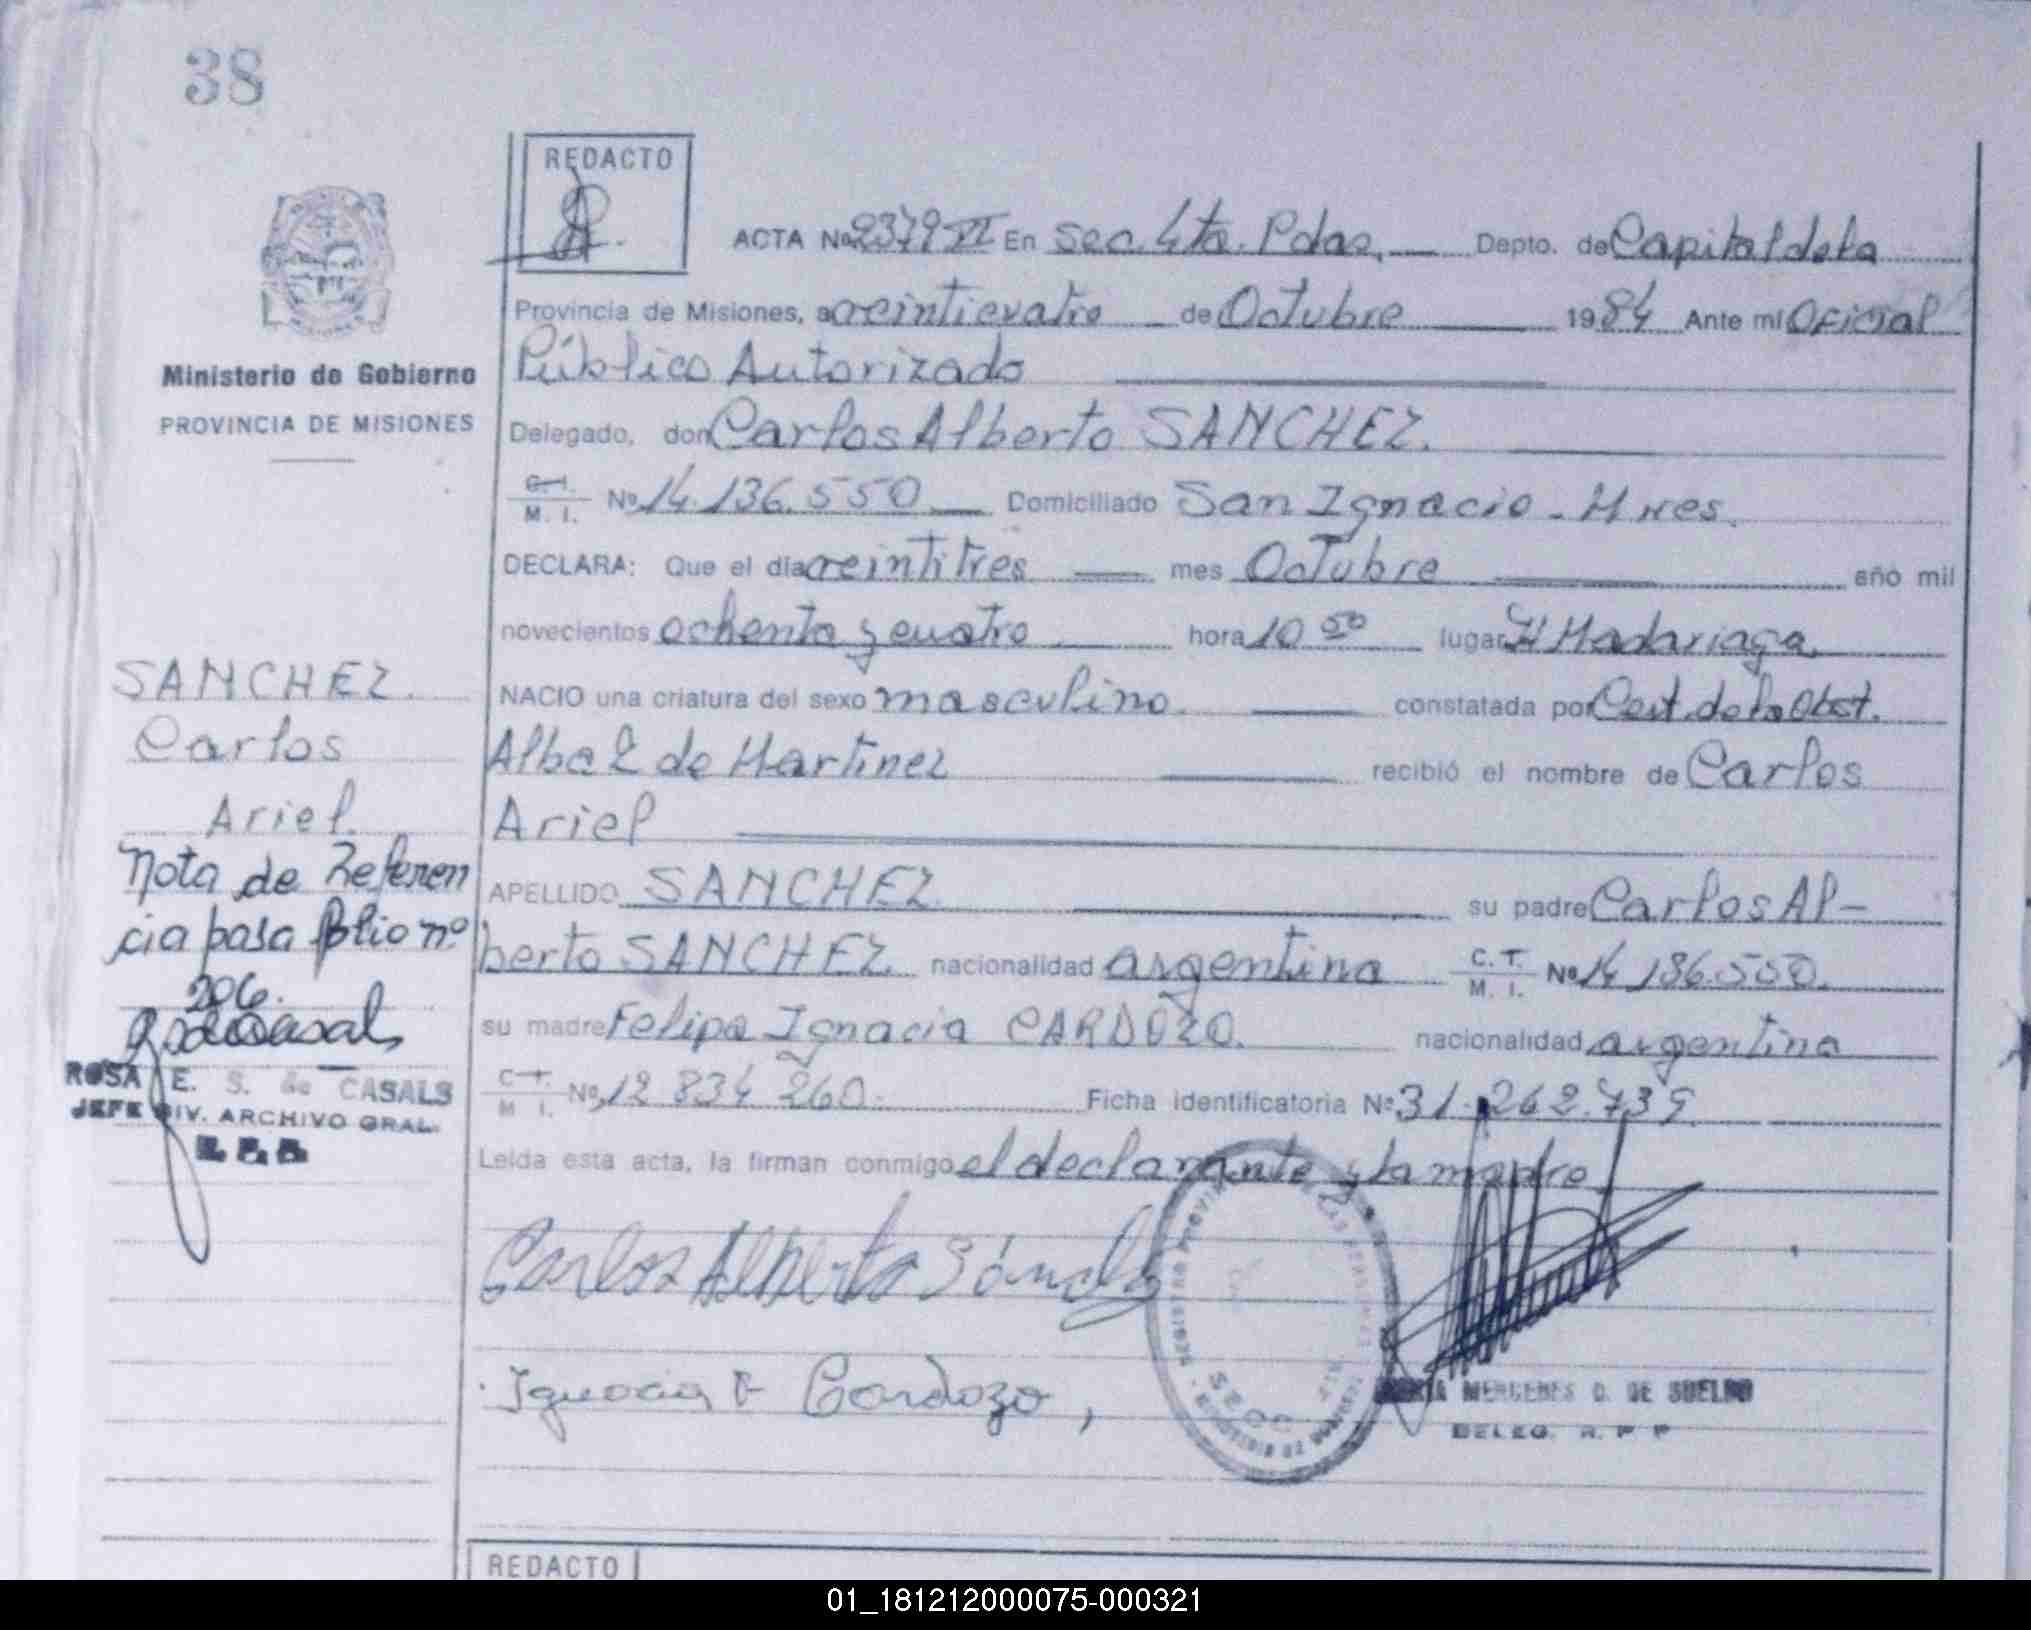 38
REDACTO
ACTA No 2379 VI En Sec. 4ta. Pdas, Depto. de Capital de la
Provincia de Misiones, a veinticuatro de Octubre 1984 Ante mi Oficial
Ministerio de Gobierno
PROVINCIA DE MISIONES
Público Autorizado
Delegado, don Carlos Alberto SANCHEZ.
C. I. M. I. Nº 14.136.550 Domiciliado San Ignacio - Mnes.
DECLARA: Que el día veintitres mes Octubre año mil
novecientos ochenta y cuatro hora 10 50 lugar H Madariaga
NACIO una criatura del sexo masculino constatada por Cert. de la Obst.
Alba de Martinez recibió el nombre de Carlos
Ariel
APELLIDO SANCHEZ su padre Carlos Al-
berto SANCHEZ nacionalidad argentina C. I. M. I. Nº 14 136.550.
su madre Felipa Ignacia CARDOZO. nacionalidad argentina
C. I. M. I. Nº 12 834 260. Ficha identificatoria Nº 31.262.739
Leída esta acta, la firman conmigo el declarante y la madre
SANCHEZ.
Carlos
Ariel.
Nota de Referen
cia pasa folio nº
206.
ROSA E. S. de CASALS
JEFE DIV. ARCHIVO GRAL.
Carlos Alberto Sánch
Ignacia F Cardozo,
MERCEDES D. DE SUELDO
DELEG. R. P. P
REDACTO
01_181212000075-000321